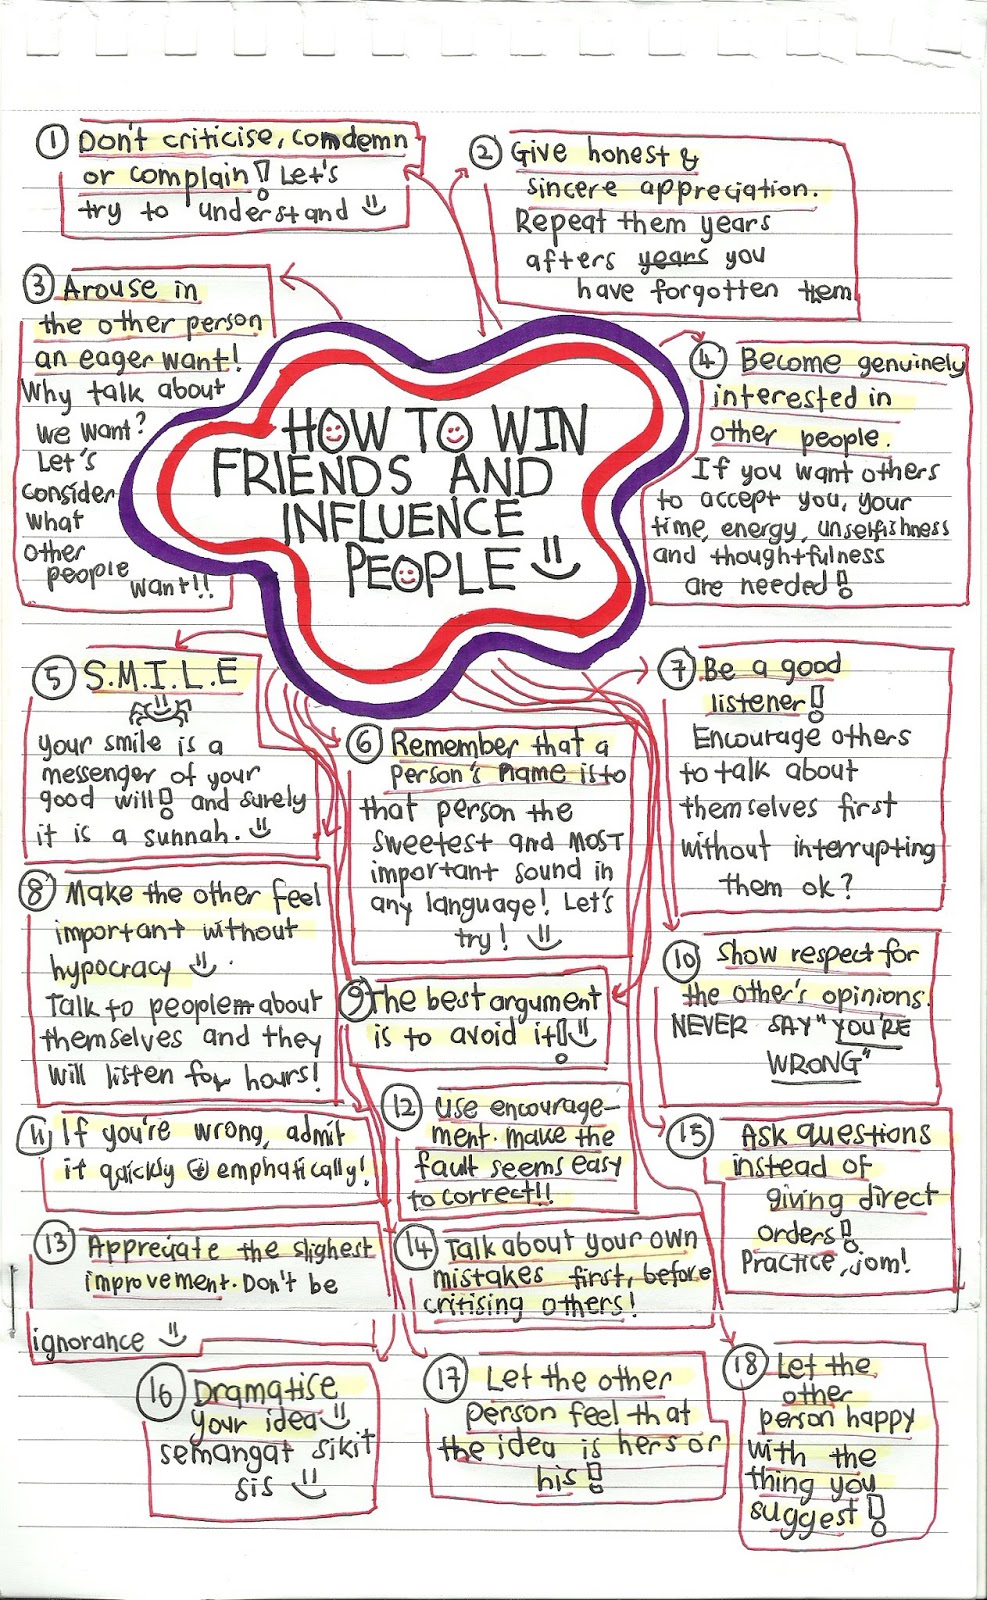 1 Don't criticise, comdemn
or complain! Let's
try to understand
2 Give honest &
sincere appreciation.
Repeat them years
afters years you
have forgotten them
3 Arouse in
the other person
an eager want!
Why talk about
we want?
Let's
consider
what
other
people
want!!
HOW TO WIN
FRIENDS AND
INFLUENCE
PEOPLE
4 Become genuinely
interested in
other people.
If you want others
to accept you, your
time, energy, unselfishness
and thoughtfulness
are needed!
5 S.M.I.L.E
your smile is a
messenger of your
good will! and surely
it is a sunnah.
6 Remember that a
person's name is to
that person the
sweetest and MOST
important sound in
any language! Let's
try!
7 Be a good
listener!
Encourage others
to talk about
themselves first
without interrupting
them ok?
8 Make the other feel
important without
hypocracy
Talk to people about
themselves and they
will listen for hours!
9 The best argument
is to avoid it!
10 Show respect for
the other's opinions.
NEVER SAY "YOU'RE
WRONG"
11 If you're wrong, admit
it quickly & emphatically!
12 Use encourage-
ment. make the
fault seems easy
to correct!!
13 Appreciate the slighest
improvement. Don't be
ignorance
14 Talk about your own
mistakes first, before
critising others!
15 Ask questions
instead of
giving direct
orders!
Practice, jom!
16 Dramatise
your idea
semangat sikit
sis
17 Let the other
person feel that
the idea is hers or
his!
18 Let the
other
person happy
with the
thing you
suggest!